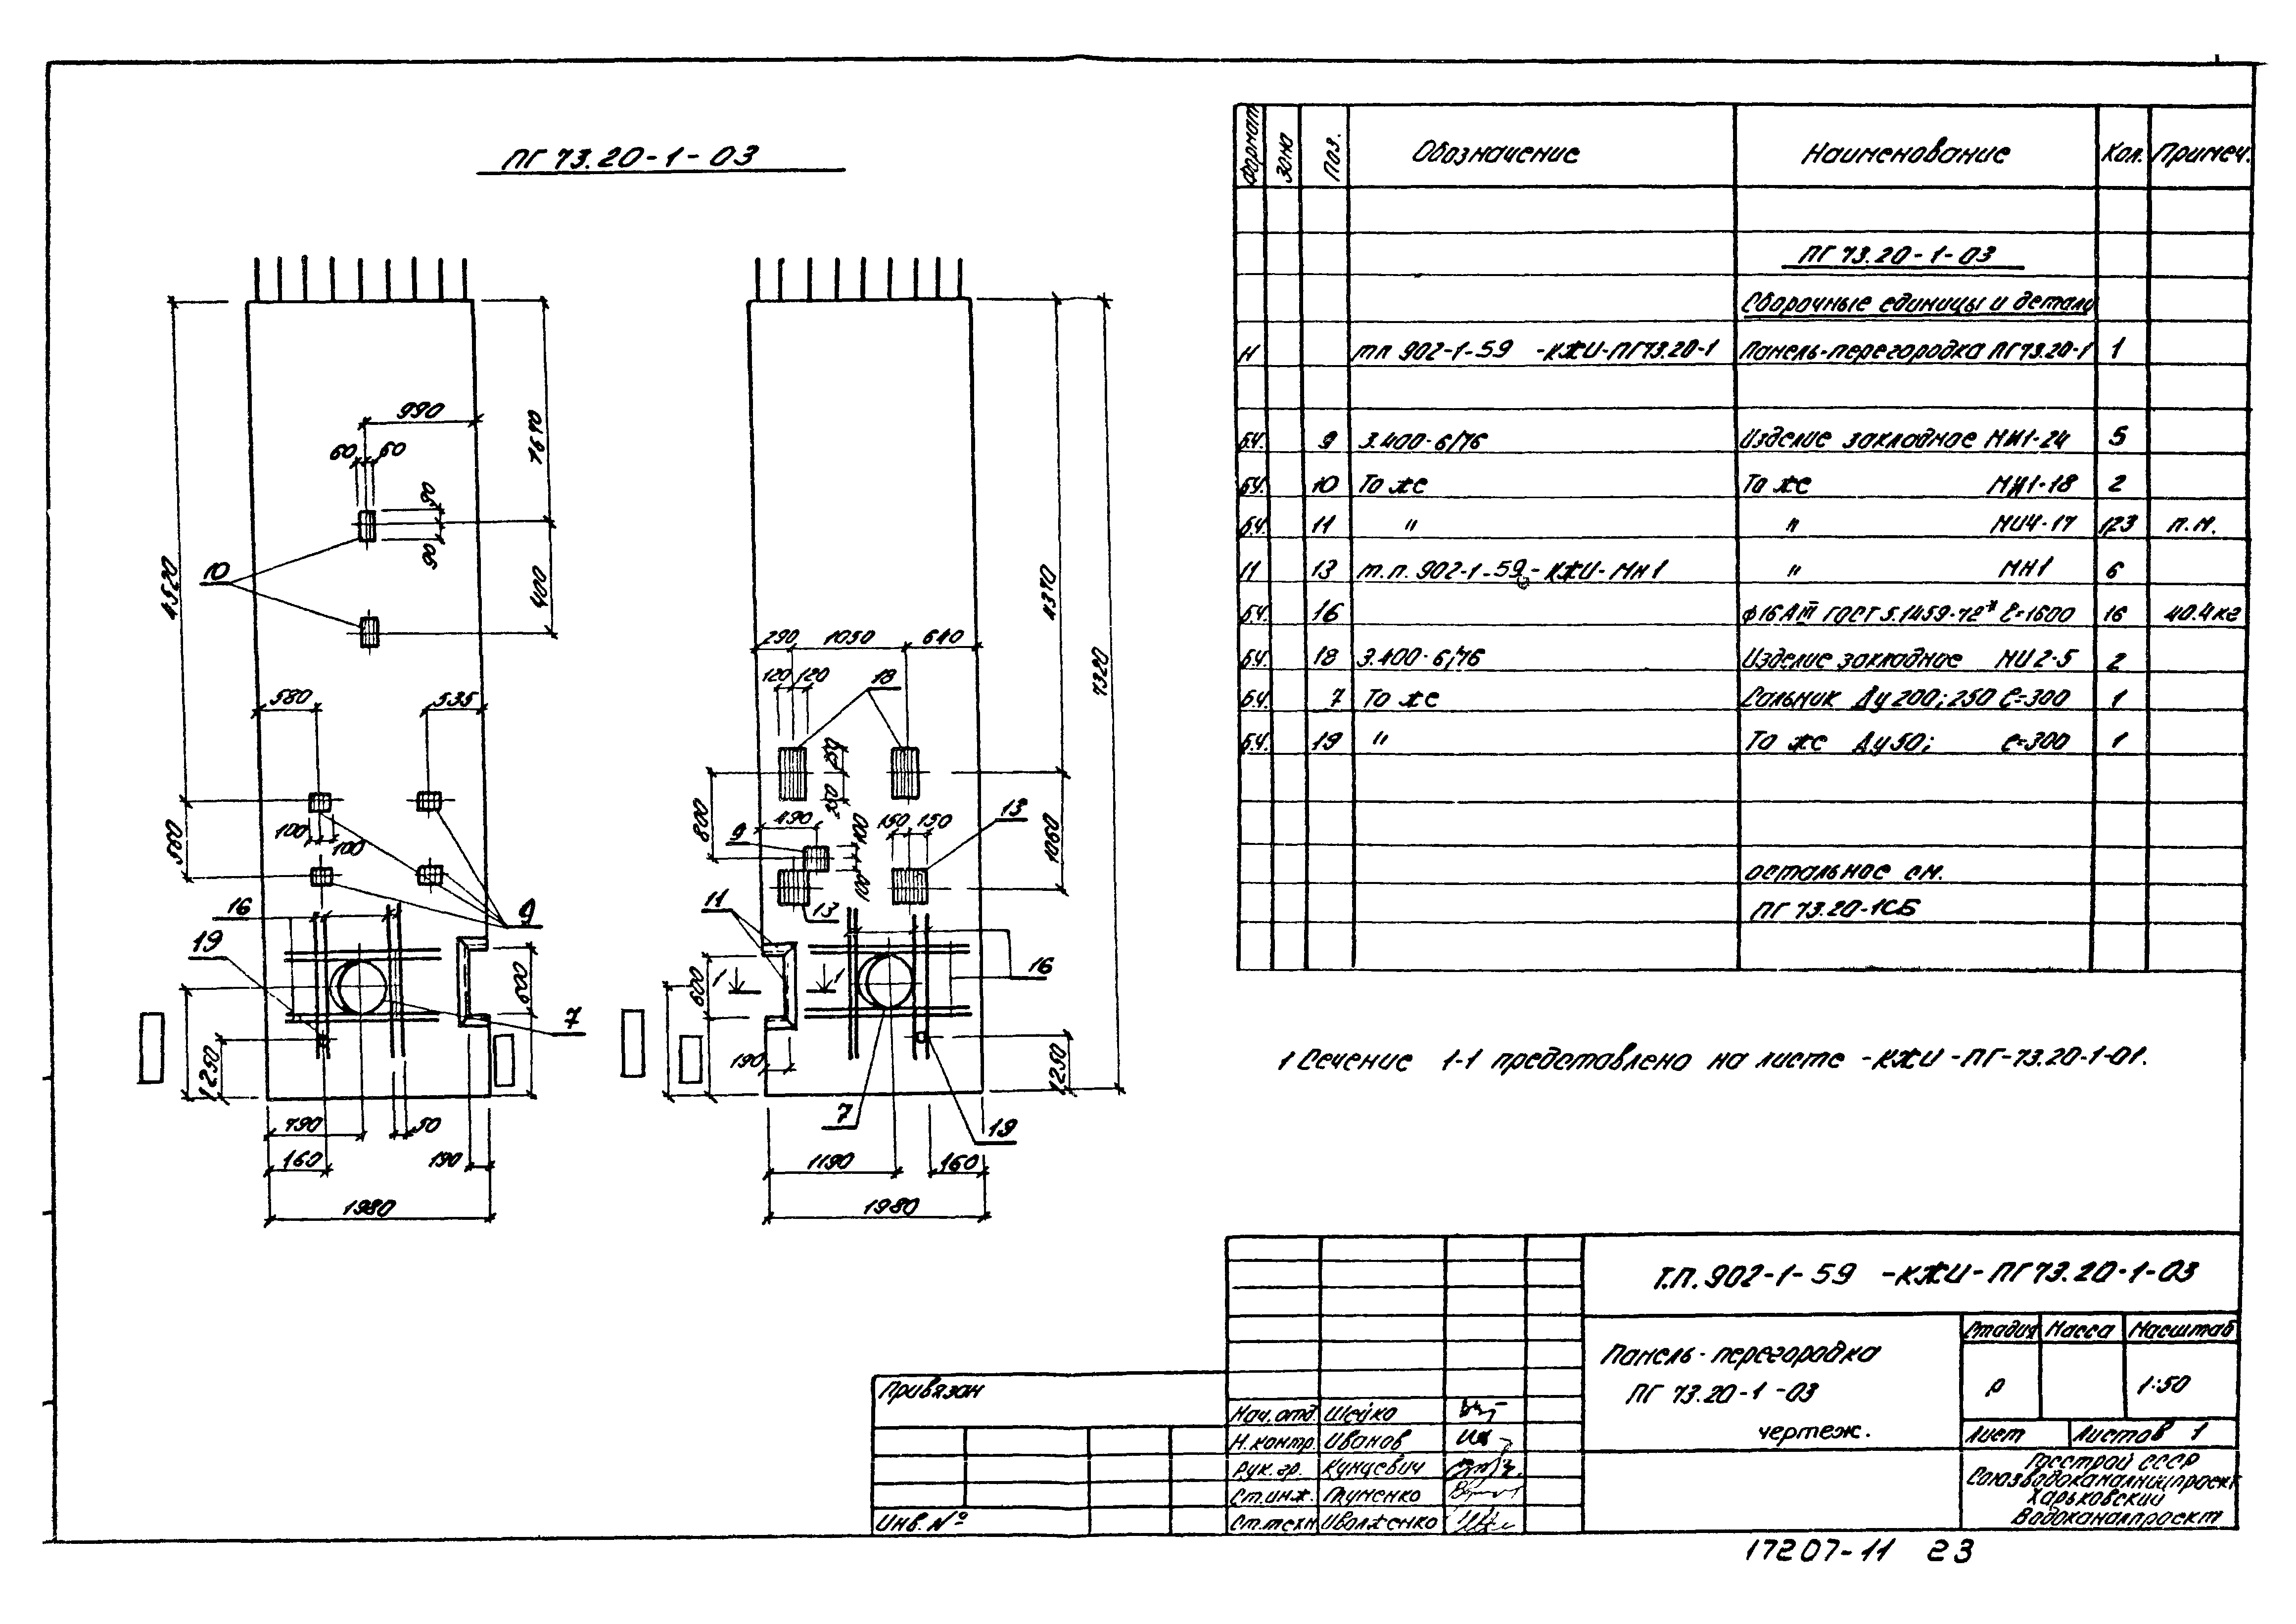 ПГ 73.20-1-03
990
60 60
1610
400
4520
10
580
535
100
100
560
16
9
19
7
600
1250
790
50
160
190
1980
290 1050 640
120 120
18
4370
7320
800
9
490
100
100
150 150
13
1060
13
11
600
1 1
16
190
7
19
1250
1190
160
1980
Формат Зона Поз. Обозначение Наименование Кол. Примеч.
ПГ 73.20-1-03
Сборочные единицы и детали
11 тп 902-1-59 -КЖИ-ПГ73.20-1 Панель-перегородка ПГ73.20-1 1
Б.Ч. 9 3.400-6/76 Изделие закладное МИ1-24 5
Б.Ч. 10 То же То же МИ1-18 2
Б.Ч. 11 " " МИ4-17 п.м.
11 13 т.п. 902-1-59 -КЖИ-МН1 " МН1 6
Б.Ч. 16 ф16АIII ГОСТ 5.1459-72* ℓ=1600 16 40.4кг
Б.Ч. 18 3.400-6/76 Изделие закладное МИ2-5 2
Б.Ч. 7 То же Сальник Ду200; 250 ℓ=300 1
Б.Ч. 19 " То же Ду50; ℓ=300 1
остальное см.
ПГ 73.20-1СБ
1 Сечение 1-1 представлено на листе -КЖИ-ПГ-73.20-1-01.
Т.П. 902-1-59 -КЖИ-ПГ73.20-1-03
Панель-перегородка
ПГ 73.20-1-03
чертеж.
Стадия Масса Масштаб
Р 1:50
Лист Листов 1
Госстрой СССР
Союзводоканалниипроект
Харьковский
Водоканалпроект
Привязан
Инв. №
Нач. отд. Шейко
Н. контр. Иванов
Рук. гр. Кунцевич
Ст. инж.
Ст. техн.
17207-11 23